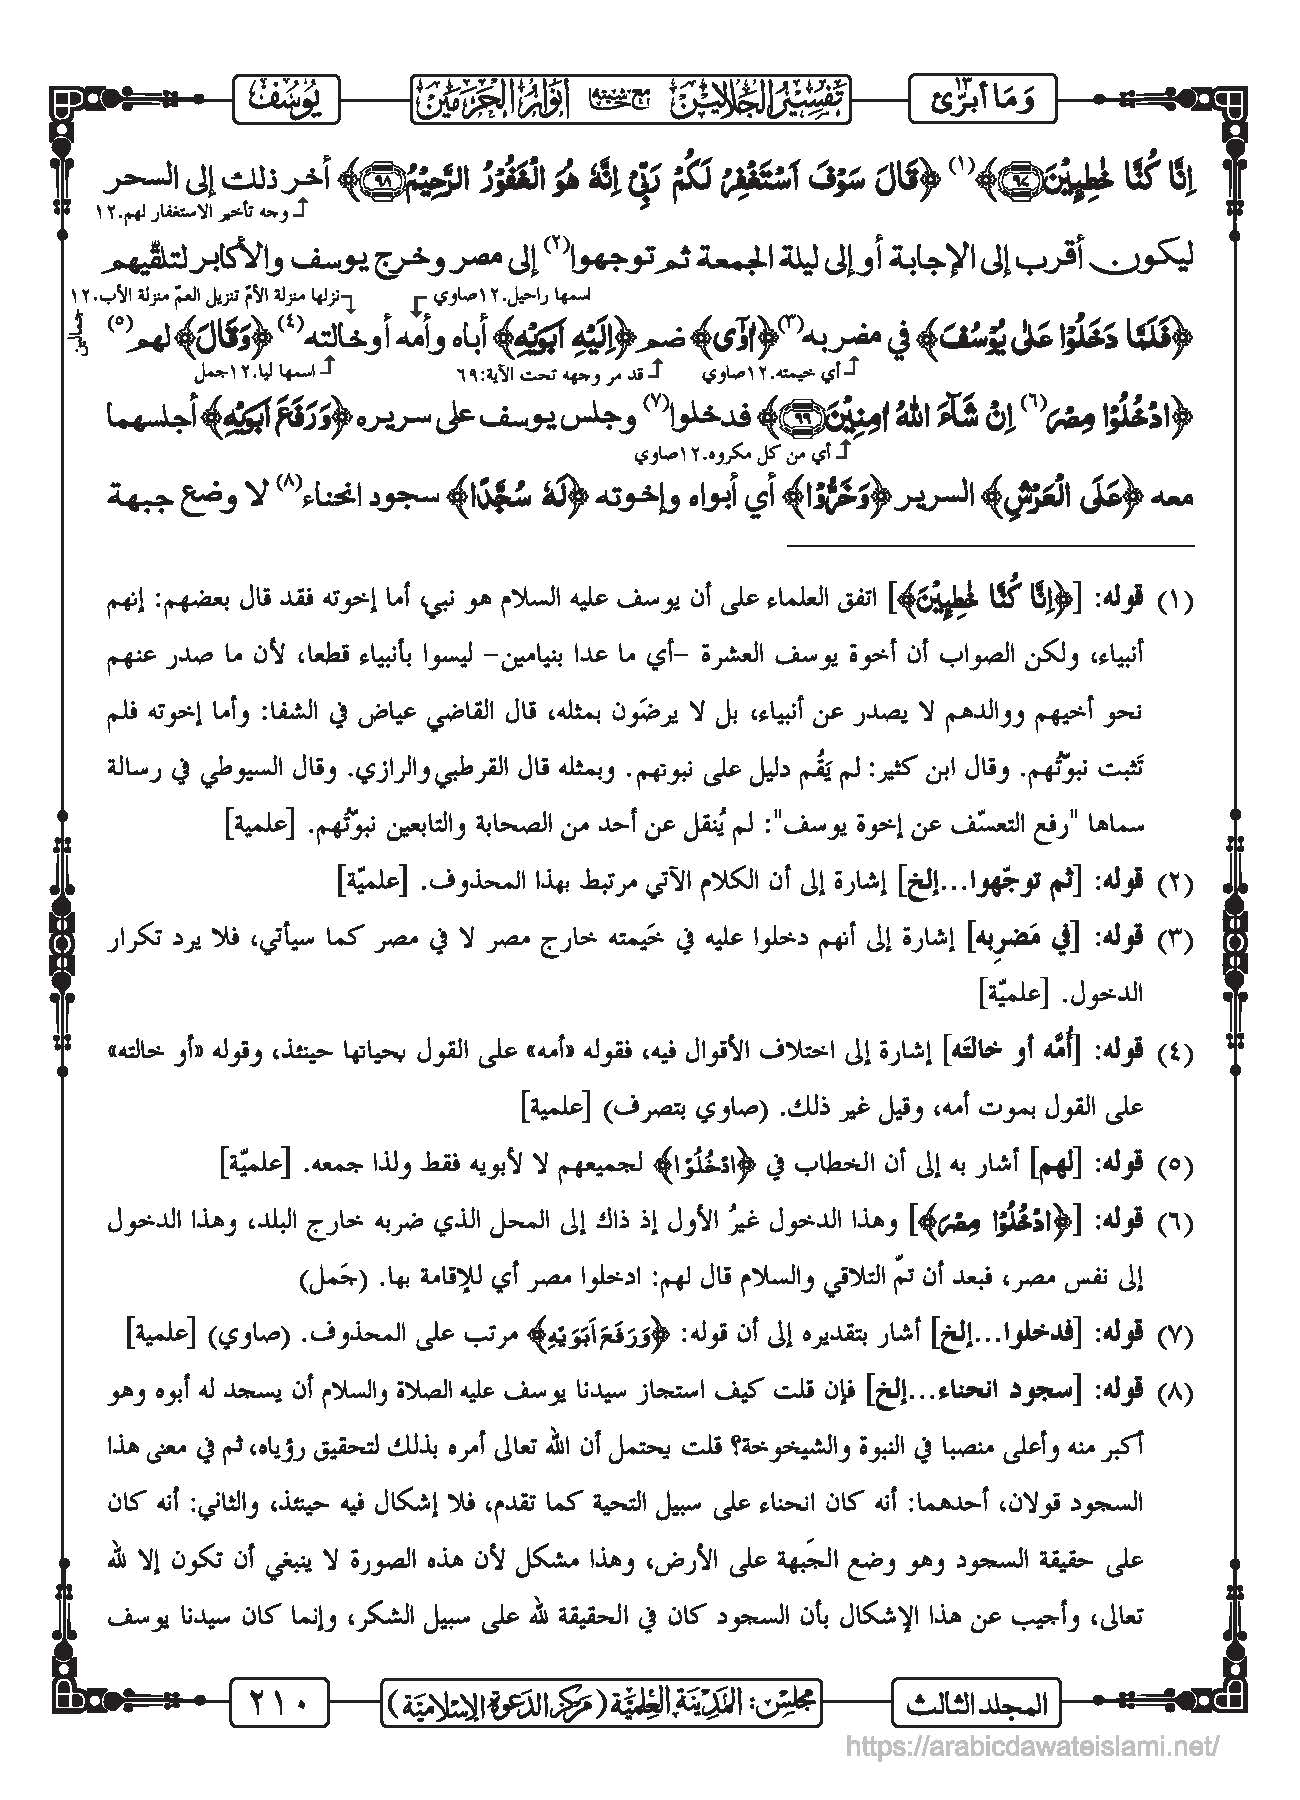 وَمَا أُبَرِّئُ ١٣
تفسير الجلالين مع حاشيته أنوار الحرمين
يُوسُف
اِنَّا كُنَّا خٰطِـِٕيْنَ﴿۹۷﴾﴾(١) ﴿قَالَ سَوْفَ اَسْتَغْفِرُ لَكُمْ رَبِّیْؕ اِنَّهٗ هُوَ الْغَفُوْرُ الرَّحِیْمُ﴿۹۸﴾﴾ أخر ذلك إلى السحر
وجه تأخير الاستغفار لهم.١٢
ليكون أقرب إلى الإجابة أو إلى ليلة الجمعة ثم توجهوا(٢) إلى مصر وخرج يوسف والأكابر لتلقّيهم
اسمها راحيل.١٢صاوي
نزلها منزلة الأمّ تنزيل العمّ منزلة الأب.١٢
جمالين
﴿فَلَمَّا دَخَلُوْا عَلٰی یُوْسُفَ﴾ في مضربه(٣) ﴿اٰوٰۤی﴾ ضم ﴿اِلَیْهِ اَبَوَیْهِ﴾ أباه وأمه أو خالته(٤) ﴿وَقَالَ﴾ لهم(٥)
أي خيمته.١٢صاوي
قد مر وجهه تحت الآية:٦٩
اسمها ليا.١٢جمل
﴿ادْخُلُوْا مِصْرَ(٦) اِنْ شَآءَ اللّٰهُ اٰمِنِیْنَ﴿۹۹﴾﴾ فدخلوا(٧) وجلس يوسف على سريره ﴿وَرَفَعَ اَبَوَیْهِ﴾ أجلسهما
أي من كل مكروه.١٢صاوي
معه ﴿عَلَی الْعَرْشِ﴾ السرير ﴿وَخَرُّوْا﴾ أي أبواه وإخوته ﴿لَهٗ سُجَّدًا﴾ سجود انحناء(٨) لا وضع جبهة
(١) قوله: [﴿اِنَّا كُنَّا خٰطِـِٕيْنَ﴾] اتفق العلماء على أن يوسف عليه السلام هو نبي، أما إخوته فقد قال بعضهم: إنهم
أنبياء، ولكن الصواب أن أخوة يوسف العشرة -أي ما عدا بنيامين- ليسوا بأنبياء قطعا، لأن ما صدر عنهم
نحو أخيهم ووالدهم لا يصدر عن أنبياء، بل لا يرضَون بمثله، قال القاضي عياض في الشفا: وأما إخوته فلم
تَثبت نبوّتُهم. وقال ابن كثير: لم يَقُم دليل على نبوتهم. وبمثله قال القرطبي والرازي. وقال السيوطي في رسالة
سماها "رفع التعسّف عن إخوة يوسف": لم يُنقل عن أحد من الصحابة والتابعين نبوّتُهم. [علمية]
(٢) قوله: [ثم توجّهوا...إلخ] إشارة إلى أن الكلام الآتي مرتبط بهذا المحذوف. [علميّة]
(٣) قوله: [في مَضرِبه] إشارة إلى أنهم دخلوا عليه في خَيمته خارج مصر لا في مصر كما سيأتي، فلا يرد تكرار
الدخول. [علميّة]
(٤) قوله: [أُمَّه أو خالتَه] إشارة إلى اختلاف الأقوال فيه، فقوله «أمه» على القول بحياتها حينئذ، وقوله «أو خالته»
على القول بموت أمه، وقيل غير ذلك. (صاوي بتصرف) [علمية]
(٥) قوله: [لهم] أشار به إلى أن الخطاب في ﴿ادْخُلُوْا﴾ لجميعهم لا لأبويه فقط ولذا جمعه. [علميّة]
(٦) قوله: [﴿ادْخُلُوْا مِصْرَ﴾] وهذا الدخول غيرُ الأول إذ ذاك إلى المحل الذي ضربه خارج البلد، وهذا الدخول
إلى نفس مصر، فبعد أن تمّ التلاقي والسلام قال لهم: ادخلوا مصر أي للإقامة بها. (جَمل)
(٧) قوله: [فدخلوا...إلخ] أشار بتقديره إلى أن قوله: ﴿وَرَفَعَ اَبَوَیْهِ﴾ مرتب على المحذوف. (صاوي) [علمية]
(٨) قوله: [سجود انحناء...إلخ] فإن قلت كيف استجاز سيدنا يوسف عليه الصلاة والسلام أن يسجد له أبوه وهو
أكبر منه وأعلى منصبا في النبوة والشيخوخة؟ قلت يحتمل أن الله تعالى أمره بذلك لتحقيق رؤياه، ثم في معنى هذا
السجود قولان، أحدهما: أنه كان انحناء على سبيل التحية كما تقدم، فلا إشكال فيه حينئذ، والثاني: أنه كان
على حقيقة السجود وهو وضع الجَبهة على الأرض، وهذا مشكل لأن هذه الصورة لا ينبغي أن تكون إلا لله
تعالى، وأجيب عن هذا الإشكال بأن السجود كان في الحقيقة لله على سبيل الشكر، وإنما كان سيدنا يوسف
المجلد الثالث
مجلس: المَدِينَة العِلميَّة (مركز الدعوة الإسلاميّة)
٢١٠
https://arabicdawateislami.net/